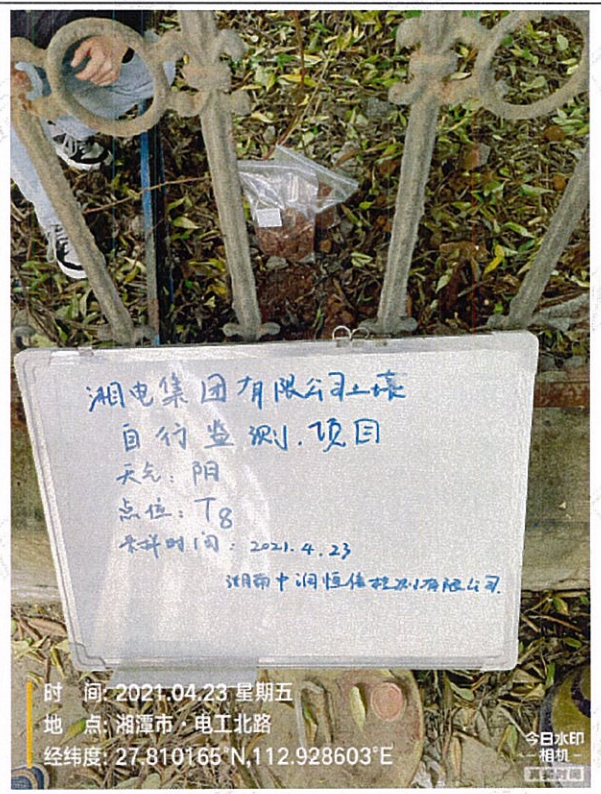 湘电集团有限公司土壤
自行监测.项目
天气:阴
点位:T8
采样时间:2021.4.23
湖南中润恒信检测有限公司.
时 间:2021.04.23 星期五
地 点:湘潭市·电工北路
经纬度:27.810165°N,112.928603°E
今日水印
相机
真实时间